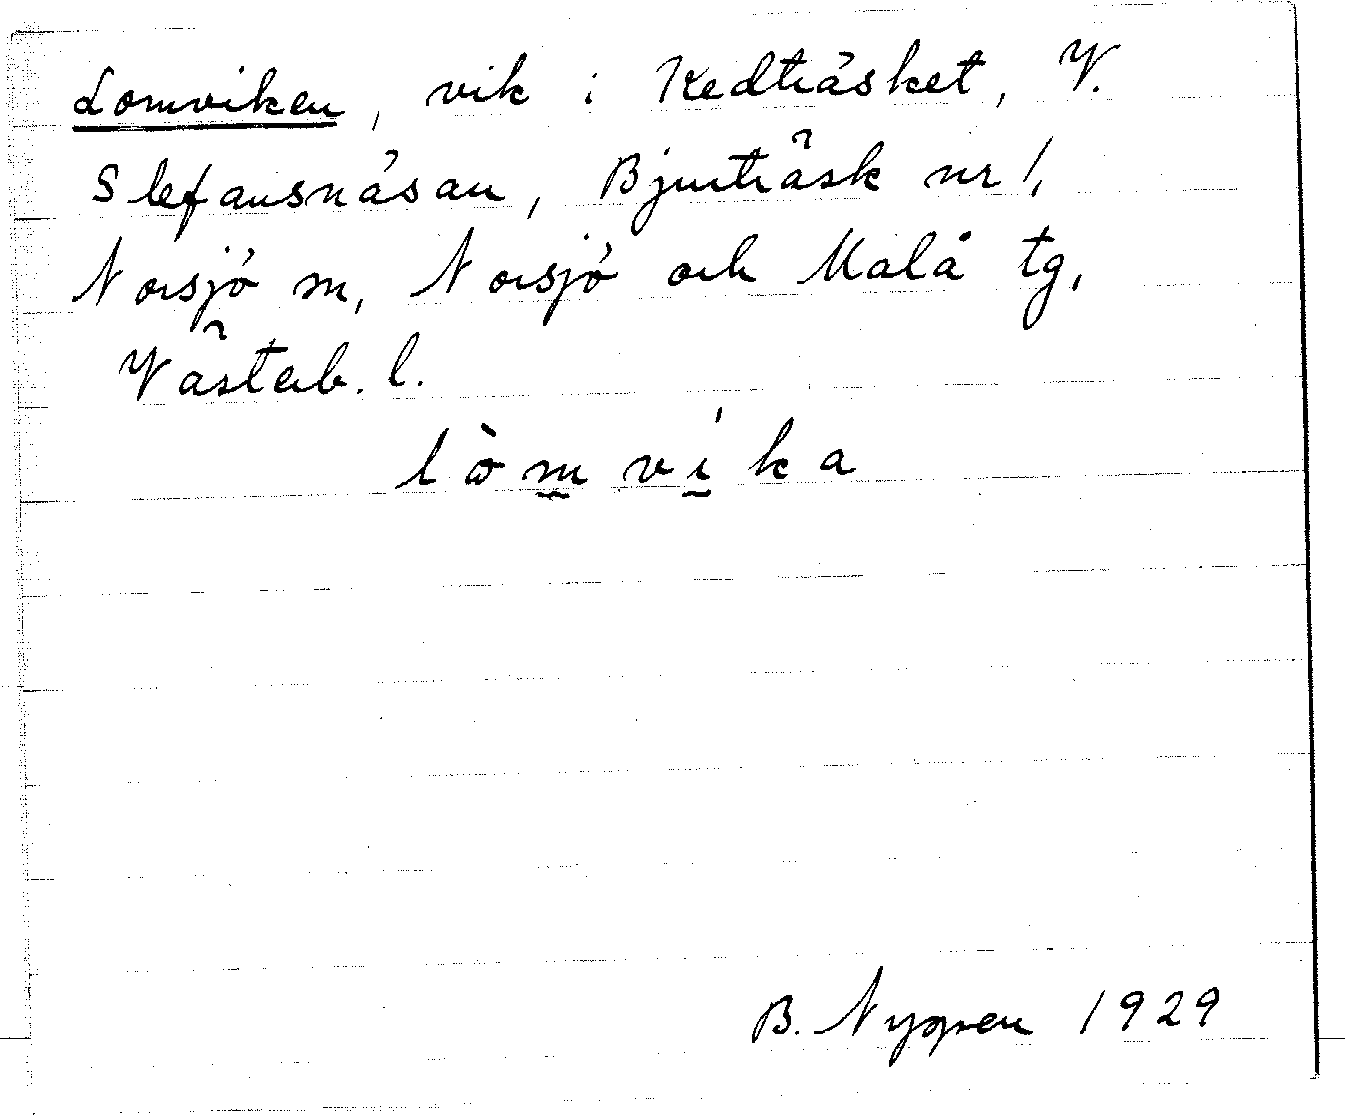 Lomviken, vik i Kedträsket, V.
Stefansnäsan, Bjurträsk nr 1,
Norsjö sn, Norsjö och Malå tg,
Västerb. l.
lòmvika
B. Nygren 1929